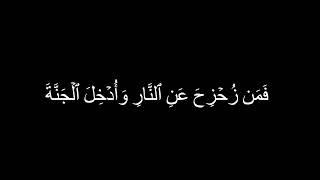 فَمَن زُحْزِحَ عَنِ ٱلنَّارِ وَأُدْخِلَ ٱلْجَنَّةَ